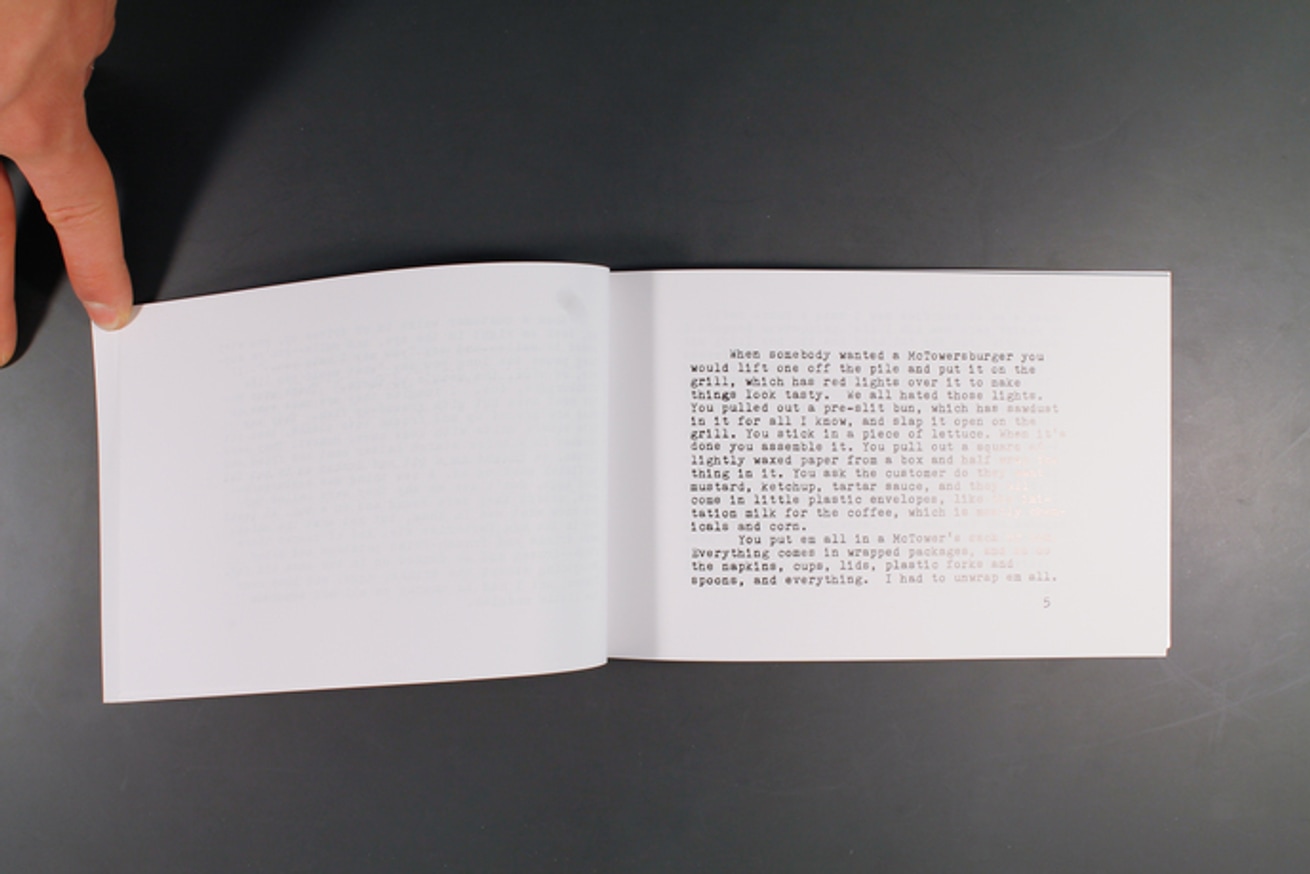 When somebody wanted a McTowersburger you
would lift one off the pile and put it on the
grill, which has red lights over it to make
things look tasty.  We all hated those lights.
You pulled out a pre-slit bun, which has sawdust
in it for all I know, and slap it open on the
grill. You stick in a piece of lettuce. When it's
done you assemble it. You pull out a square
lightly waxed paper from a box and half
thing in it. You ask the customer do they
mustard, ketchup, tartar sauce, and they
come in little plastic envelopes, like
tation milk for the coffee, which is
icals and corn.
You put em all in a McTower's
Everything comes in wrapped packages,
the napkins, cups, lids, plastic forks and
spoons, and everything.  I had to unwrap em all.
5